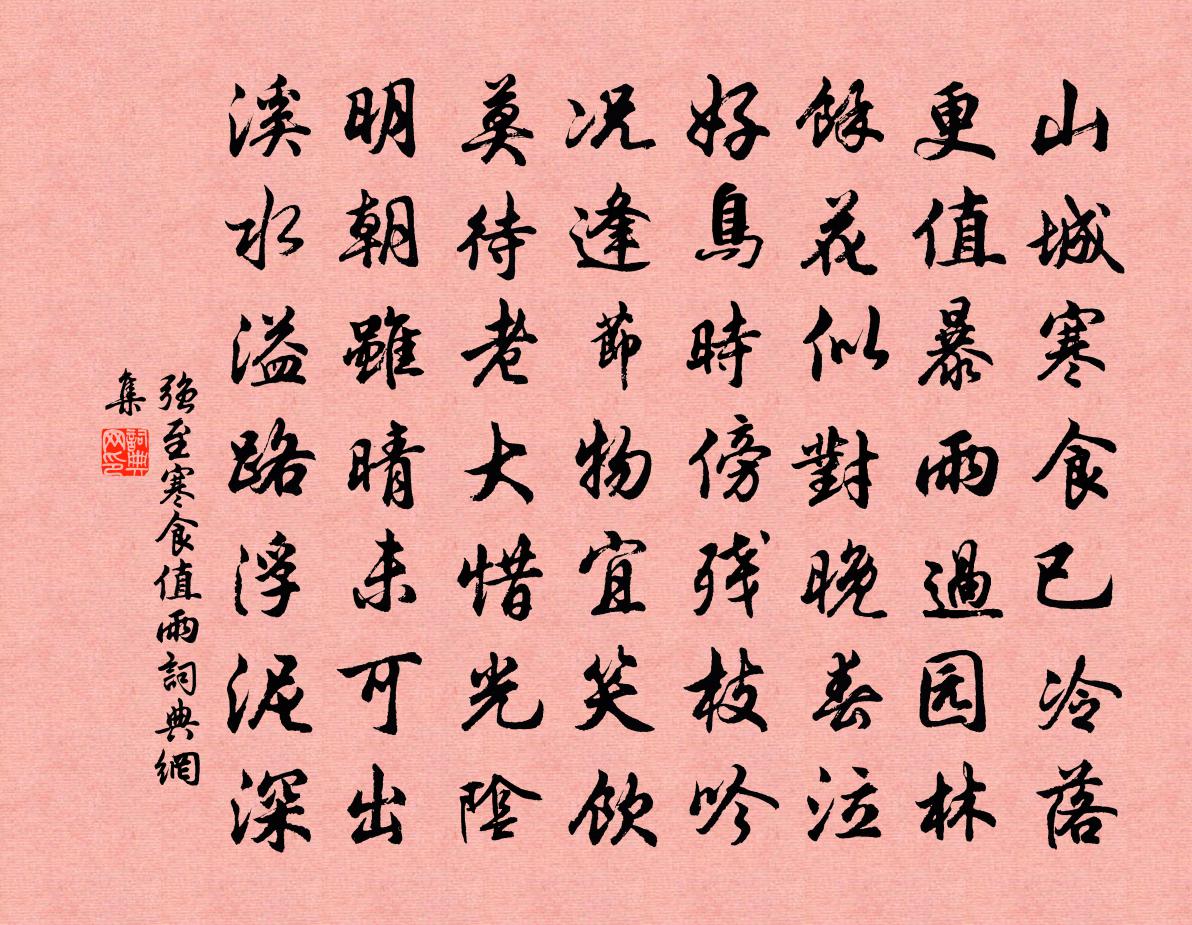 山城寒食已冷落
更值暴雨過园林
餘花似對晚春泣
好鳥時傍残枝吟
况逢節物宜笑飲
莫待老大惜光陰
明朝雖晴未可出
溪水溢路浮泥深
強至寒食值雨詞典網
集
詞典
网印